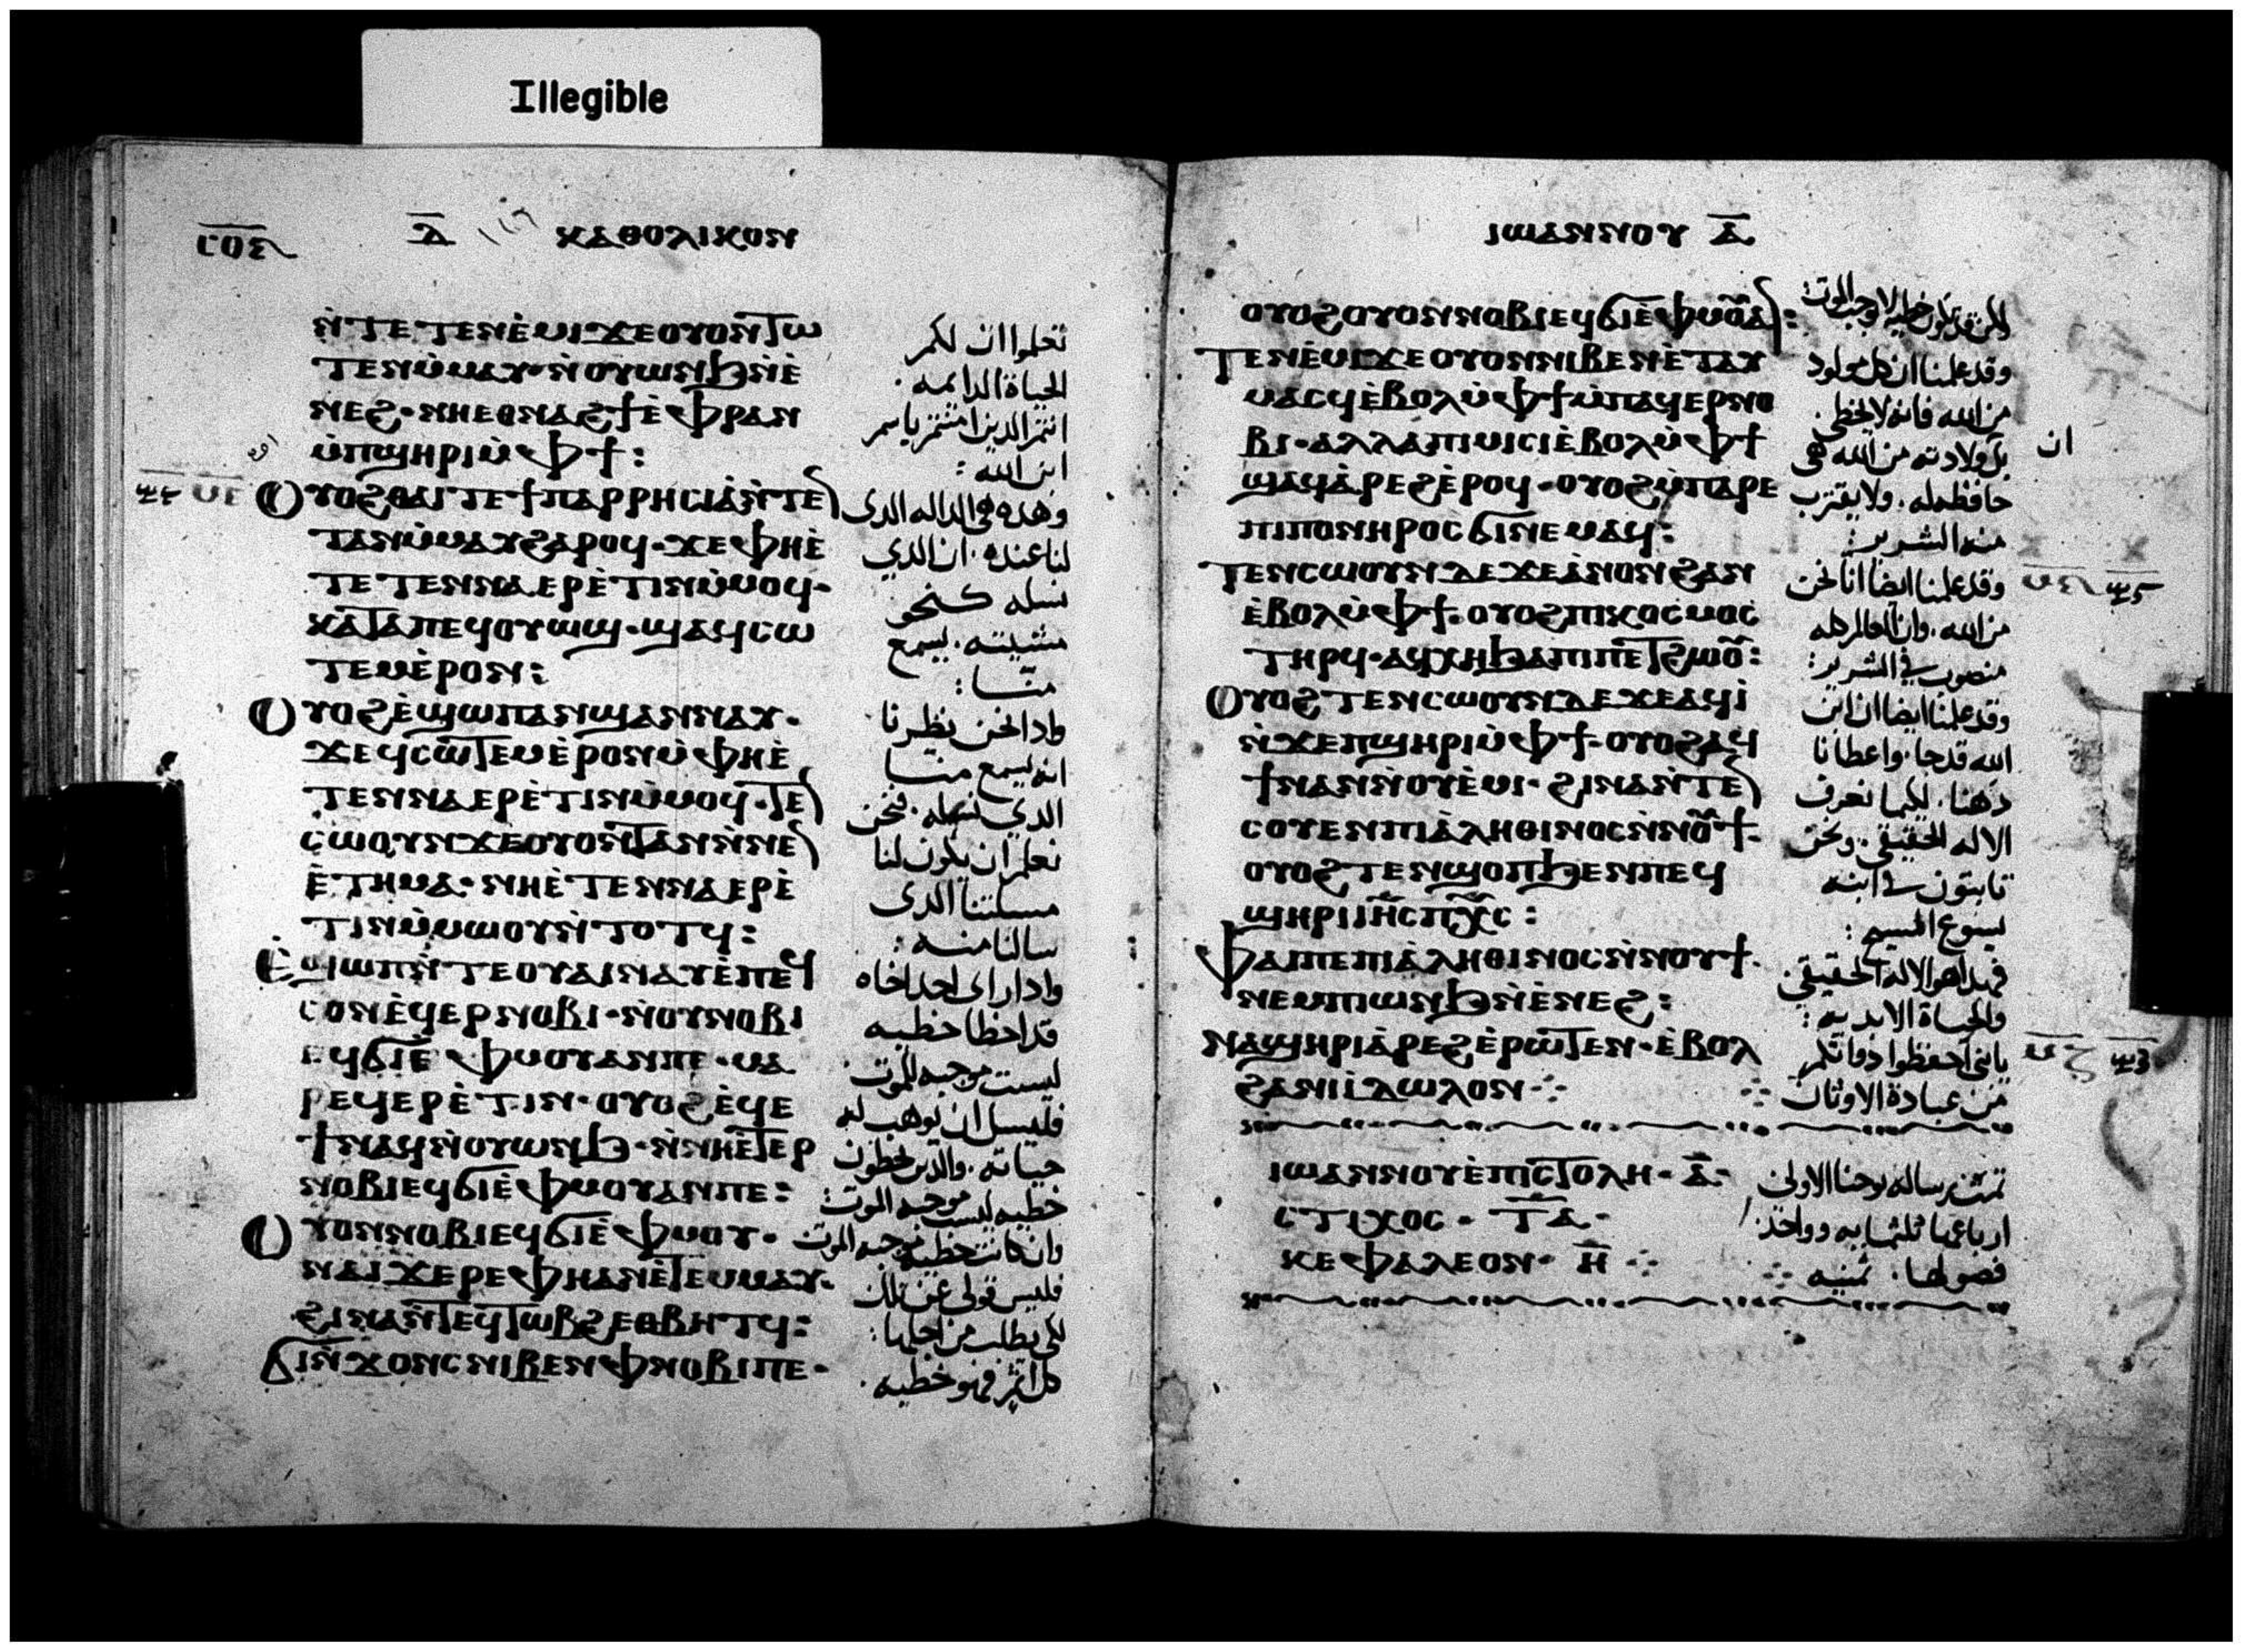 Illegible
ⲁ̅ ⲕⲁⲑⲟⲗⲓⲕⲟⲛ
ⲛ̀ⲧⲉⲧⲉⲛⲉ̀ⲙⲓ ϫⲉ ⲟⲩⲟⲛⲧⲱ
ⲧⲉⲛⲙ̀ⲙⲁⲩ· ⲛ̀ⲟⲩⲱⲛϧ ⲛ̀ⲉ̀
ⲛⲉϩ· ⲛⲏⲉⲑⲛⲁϩϯ ⲉ̀ⲫⲣⲁⲛ
ⲙ̀ⲡϣⲏⲣⲓ ⲙ̀ⲫϯ:
ⲟⲩⲟϩ ⲑⲁⲓ ⲧⲉ ϯⲡⲁⲣⲣⲏⲥⲓⲁ ⲛ̀ⲧⲉ
ⲧⲁⲛⲙ̀ⲙⲁⲩ ϩⲁⲣⲟϥ· ϫⲉ ⲫⲏⲉ̀
ⲧⲉⲧⲉⲛⲛⲁⲉⲣⲉ̀ⲧⲓⲛ ⲙ̀ⲙⲟϥ·
ⲕⲁⲧⲁ ⲡⲉϥⲟⲩⲱϣ· ϣⲁϥⲥⲱ
ⲧⲉⲙ ⲉ̀ⲣⲟⲛ:
ⲟⲩⲟϩ ⲉ̀ϣⲱⲡ ⲁⲛϣⲁⲛⲛⲁⲩ·
ϫⲉ ϥⲥⲱⲧⲉⲙ ⲉ̀ⲣⲟⲛ ⲙ̀ⲫⲏⲉ̀
ⲧⲉⲛⲛⲁⲉⲣⲉ̀ⲧⲓⲛ ⲙ̀ⲙⲟϥ· ⲧⲉ
ⲥⲱⲟⲩⲛ ϫⲉ ⲟⲩⲟⲛⲧⲁⲛ ⲛ̀ⲛⲉ̀
ⲉ̀ⲧⲏⲙⲁ· ⲛⲏⲉ̀ⲧⲉⲛⲛⲁⲉⲣⲉ̀
ⲧⲓⲛ ⲙ̀ⲙⲱⲟⲩ ⲛ̀ⲧⲟⲧϥ:
ⲉ̀ϣⲱⲡ ⲛ̀ⲧⲉ ⲟⲩⲁⲓ ⲛⲁⲩ ⲉ̀ⲡⲉϥ
ⲥⲟⲛ ⲉ̀ϥⲉⲣⲛⲟⲃⲓ· ⲛ̀ⲟⲩⲛⲟⲃⲓ
ⲉϥϭⲓ ⲉ̀ⲫⲙⲟⲩ ⲁⲛ ⲡⲉ· ⲙⲁ
ⲣⲉϥⲉⲣⲉ̀ⲧⲓⲛ· ⲟⲩⲟϩ ⲉ̀ϥⲉ
ϯ ⲛⲁϥ ⲛ̀ⲟⲩⲱⲛϧ· ⲛ̀ⲛⲏⲉ̀ⲧⲉⲣ
ⲛⲟⲃⲓ ⲉϥϭⲓ ⲉ̀ⲫⲙⲟⲩ ⲁⲛ ⲡⲉ:
ⲟⲩⲟⲛ ⲛⲟⲃⲓ ⲉϥϭⲓ ⲉ̀ⲫⲙⲟⲩ·
ⲛⲁⲓϫⲉⲣⲉ ⲫⲏ ⲁⲛ ⲉ̀ⲧⲉⲙⲙⲁⲩ·
ϩⲓⲛⲁ ⲛ̀ⲧⲉϥⲧⲱⲃϩ ⲉⲑⲃⲏⲧϥ:
ϭⲓⲛ̀ϫⲟⲛⲥ ⲛⲓⲃⲉⲛ ⲫⲛⲟⲃⲓ ⲡⲉ·
تعلموا ان لكم
الحياة الدايمه·
انتم الدين امنتم باسم
ابن الله:
وهده هى الداله الدى
لنا عنده· ان الدي
نسله كنحو
مشيته· يسمع
منا:
وادا نحن نظرنا
انه يسمع منا
الدي نسله· نحن
نعلم ان يكون لنا
مسلتنا الدى
سالنا منه:
وادا راى احد اخاه
قد اخطا خطيه
ليست موجبه الموت·
فليسل ان يوهب له
حياته· والدين يخطون
خطيه ليست موجبه الموت:
وان كانت خطيه موجبه الموت
فليس قولى عن تلك
لكى يطلب من اجلها:
كل اثم فهو خطيه·
ⲓⲱⲁⲛⲛⲟⲩ ⲁ̅
ⲟⲩⲟϩ ⲟⲩⲟⲛ ⲛⲟⲃⲓ ⲉϥϭⲓ ⲉ̀ⲫⲙⲟⲩⲁ:
ⲧⲉⲛⲉ̀ⲙⲓ ϫⲉ ⲟⲩⲟⲛ ⲛⲓⲃⲉⲛ ⲉ̀ⲧⲁⲩ
ⲙⲁⲥϥ ⲉ̀ⲃⲟⲗ ⲙ̀ⲫϯ ⲙ̀ⲡⲁϥⲉⲣⲛⲟ
ⲃⲓ· ⲁⲗⲗⲁ ⲡⲓⲙⲓⲥⲓ ⲉ̀ⲃⲟⲗ ⲙ̀ⲫϯ
ϣⲁϥⲁ̀ⲣⲉϩ ⲉ̀ⲣⲟϥ· ⲟⲩⲟϩ ⲙ̀ⲡⲁⲣⲉ
ⲡⲓⲡⲟⲛⲏⲣⲟⲥ ϭⲓ ⲛⲉⲙⲁϥ:
ⲧⲉⲛⲥⲱⲟⲩⲛ ⲇⲉ ϫⲉ ⲁ̀ⲛⲟⲛ ϩⲁⲛ
ⲉ̀ⲃⲟⲗ ⲙ̀ⲫϯ· ⲟⲩⲟϩ ⲡⲓⲕⲟⲥⲙⲟⲥ
ⲧⲏⲣϥ· ⲁϥⲭⲏ ϧⲁ ⲡⲓⲡⲉⲧϩⲱⲟⲩ:
ⲟⲩⲟϩ ⲧⲉⲛⲥⲱⲟⲩⲛ ⲇⲉ ϫⲉ ⲁϥⲓ̀
ⲛ̀ϫⲉ ⲡϣⲏⲣⲓ ⲙ̀ⲫϯ· ⲟⲩⲟϩ ⲁϥ
ϯ ⲛⲁⲛ ⲛ̀ⲟⲩⲉ̀ⲙⲓ· ϩⲓⲛⲁ ⲛ̀ⲧⲉ
ⲥⲟⲩⲉⲛ ⲡⲓⲁ̀ⲗⲏⲑⲓⲛⲟⲥ ⲛ̀ⲛⲟⲩϯ·
ⲟⲩⲟϩ ⲧⲉⲛϣⲟⲡ ϧⲉⲛ ⲡⲉϥ
ϣⲏⲣⲓ ⲓⲏⲥ ⲡⲭⲥ:
ⲫⲁⲓ ⲡⲉ ⲡⲓⲁ̀ⲗⲏⲑⲓⲛⲟⲥ ⲛ̀ⲛⲟⲩϯ·
ⲛⲉⲙ ⲡⲓⲱⲛϧ ⲛ̀ⲉ̀ⲛⲉϩ:
ⲛⲁϣⲏⲣⲓ ⲁ̀ⲣⲉϩ ⲉ̀ⲣⲱⲧⲉⲛ· ⲉ̀ⲃⲟⲗ
ϩⲁ ⲛⲓⲓ̀ⲇⲱⲗⲟⲛ·:·
ⲓⲱⲁⲛⲛⲟⲩ ⲉ̀ⲡⲓⲥⲧⲟⲗⲏ· ⲁ̅·
ⲥⲧⲓⲭⲟⲥ· ⲧ̅ⲁ̅·
ⲕⲉⲫⲁⲗⲉⲟⲛ· ⲏ̅ ·:·
وقد علمنا ان كل مولود
من الله فانه لا يخطى·
بل ولادته من الله هى
ان
حافظه له· ولا يقترب
منه الشرير:
وقد علمنا ايضا انا نحن
من الله· وان العالم كله
منصوب فى الشرير:
وقد علمنا ايضا ان ابن
الله قد جا· واعطانا
دهنا· لكيما نعرف
الاله الحقيقى· ونحن
تابتون فى ابنه
يسوع المسيح:
فهدا هو الاله الحقيقى
والحياة الابديه:
يا بنى احفظوا دواتكم
من عبادة الاوثان
تمت رساله يوحنا الاولى
فصولها· ثمنيه